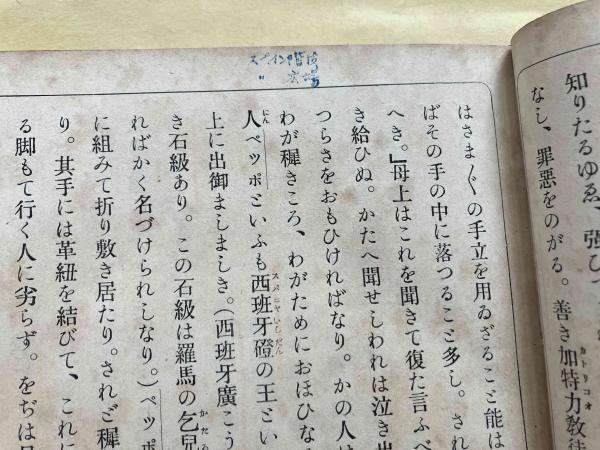 知りたるゆゑ、强ひて
なし、罪惡のがる。善き加特力敎徒
カトリコオ
スペイン階段
〃 広場
はさま〴〵の手立を用ゐざること能は
ばその手の中に落つること多し。され
へき。」母上はこれを聞きて復た言ふべ
き給ひぬ。かたへ聞せしわれは泣き出
つらさをおもひければなり。かの人は
わが穉きころ、わがためにおほひなる
人ペッポといふも西班牙磴の王とい
にん
スパニヤいしだん
上に出御ましましき。(西班牙廣こう
き石級あり。この石級は羅馬の乞兒
かたゐ
ればかく名づけられしなり。)ペッポ
に組みて折り敷き居たり。されど穉
り。其手には革紐を結びて、これに
る脚もて行く人に劣らず。をぢは